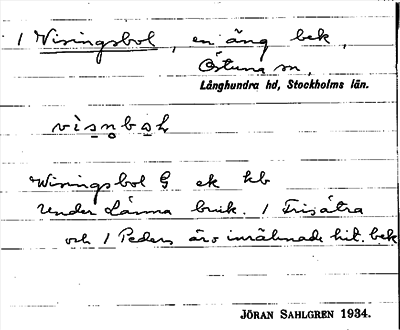 1 Wiringsbol, en äng bek,
Östuna sn,
Långhundra hd, Stockholms län.
Wiringsbol G ek kb
under Länna bruk. 1 Frisätra
och 1 Peders äro inräknade hit. bek
JÖRAN SAHLGREN 1934.